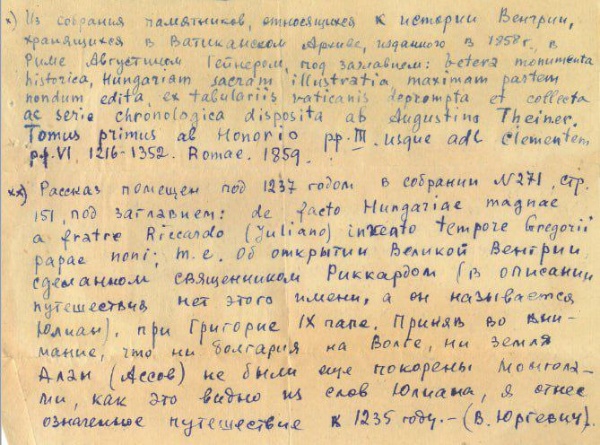 х) Из собрания памятников, относящихся к истории Венгрии,
хранящихся в Ватиканском Архиве, изданного в 1858 г. в
Риме Августином Тейнером, под заглавием: vetera monumenta
historica, Hungariam sacram illustratia maximam partem
nondum edita, ex tabulariis vaticanis deprompta et collecta
ac serie chronologica disposita ab Augustino Theiner.
Tomus primus ab Honorio pp. III. usque adl Clementem
pp. VI. 1216-1352. Romae. 1859.
хх) Рассказ помещен под 1237 годом в собрании N 271, стр.
151, под заглавием: de facto Hungariae magnae
a fratre Riccardo (Juliano) invento tempore Gregorii
papae noni; т.е. Об открытии Великой Венгрии,
сделанном священником Риккардом (в описании
путешествия нет этого имени, а он называется
Юлиан), при Григорие IX папе. Приняв во вни-
мание, что ни болгария на Волге, ни земля
Алан (Ассов) не были еще покорены монгола-
ми, как это видно из слов Юлиана, я отнес
означенное путешествие к 1235 году. - (В. Юргевич).